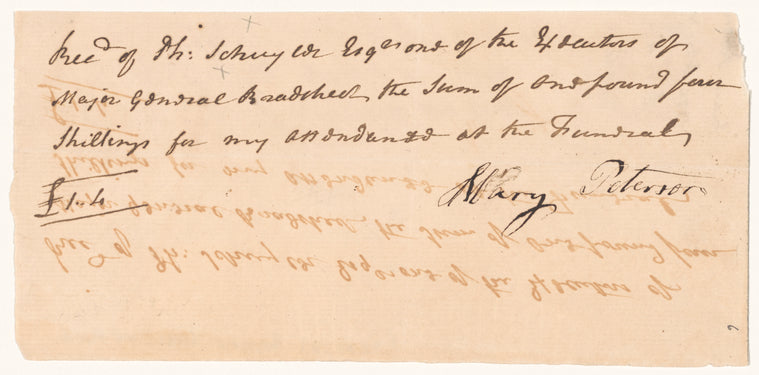 Rec.d of Ph: Schuyler Esqr one of the Executors of
Major General Bradstreet, the Sum of one pound four
Shillings for my attendance at the Funeral,
Mary Peterson
£1.4